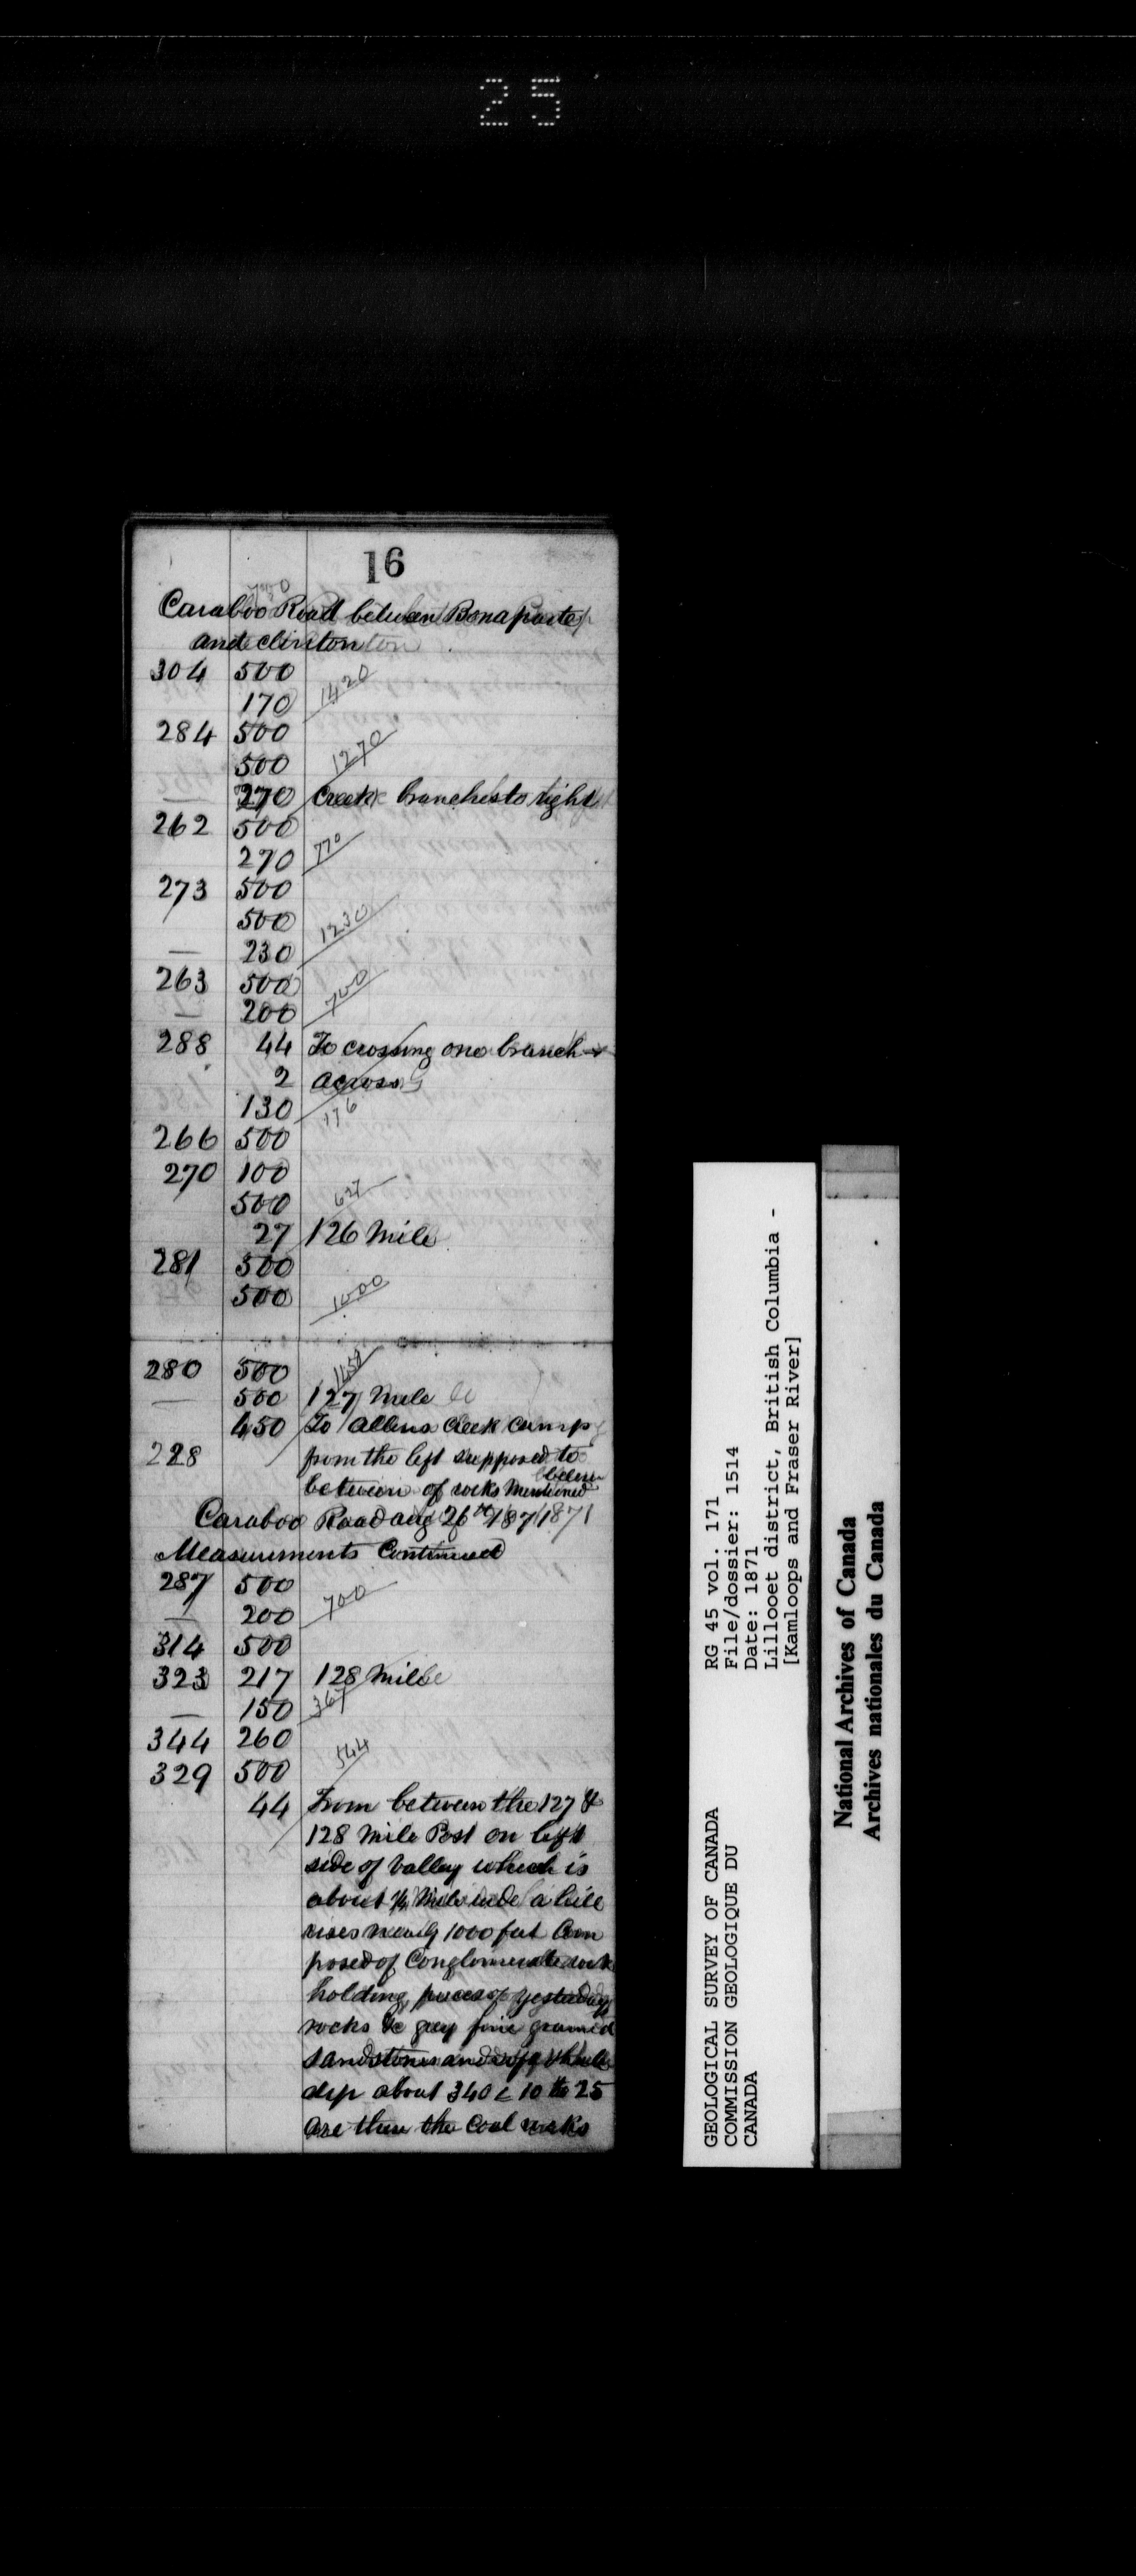 25
16
Caraboo Road between Bonaparte
and clinton
304 500
170 1420
284 500
500 1270
270 Creek branches to right
262 500
270 770
273 500
500 1230
— 230
263 500
— 200 700
288 44 To crossing one branch
2 across
130 176
266 500
270 100
500 627
27 126 Mile
281 500
500 1000
280 500 1450
— 500 127 Mile
450 To Allens Creek camp
228 from the left supposed to
between of rocks mentioned below
Caraboo Road Aug 26th 1871
Measurements Continued
287 500
— 200 700
314 500
323 217 128 Mile
— 150 367
344 260
329 500 544
44 From between the 127 &
128 Mile Post on left
side of Valley which is
about 1/4 Mile wide a hill
rises nearly 1000 feet Com
posed of Conglomerate rock
holding pieces of yesterdays
rocks & grey fine grained
sandstones and shale
dip about 340 < 10 to 25
are these the Coal rocks
RG 45 vol. 171
File/dossier: 1514
Date: 1871
Lillooet district, British Columbia -
[Kamloops and Fraser River]
GEOLOGICAL SURVEY OF CANADA
COMMISSION GEOLOGIQUE DU
CANADA
National Archives of Canada
Archives nationales du Canada